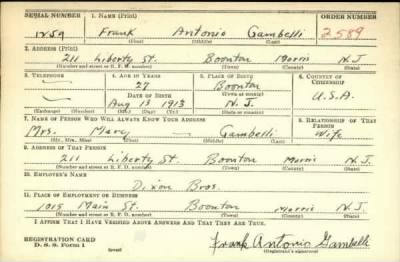 SERIAL NUMBER 1. NAME (Print) ORDER NUMBER
1259 Frank Antonio Gambelli 2589
(First) (Middle) (Last)
2. ADDRESS (Print)
211 Liberty St. Boonton Morris N.J.
(Number and street or R. F. D. number) (Town) (County) (State)
3. TELEPHONE 4. AGE IN YEARS 5. PLACE OF BIRTH 6. COUNTRY OF CITIZENSHIP
27 Boonton
DATE OF BIRTH (Town or county)
Aug 13 1913 N.J. U.S.A.
(Exchange) (Number) (Mo.) (Day) (Yr.) (State or country)
7. NAME OF PERSON WHO WILL ALWAYS KNOW YOUR ADDRESS 8. RELATIONSHIP OF THAT PERSON
Mrs. Mary — Gambelli Wife
(Mr., Mrs., Miss) (First) (Middle) (Last)
9. ADDRESS OF THAT PERSON
211 Liberty St. Boonton Morris N.J.
(Number and street or R. F. D. number) (Town) (County) (State)
10. EMPLOYER'S NAME
Dixon Bros.
11. PLACE OF EMPLOYMENT OR BUSINESS
1015 Main St. Boonton Morris N.J.
(Number and street or R. F. D. number) (Town) (County) (State)
I AFFIRM THAT I HAVE VERIFIED ABOVE ANSWERS AND THAT THEY ARE TRUE.
REGISTRATION CARD
D. S. S. Form 1 (over) Frank Antonio Gambelli
(Registrant's signature)